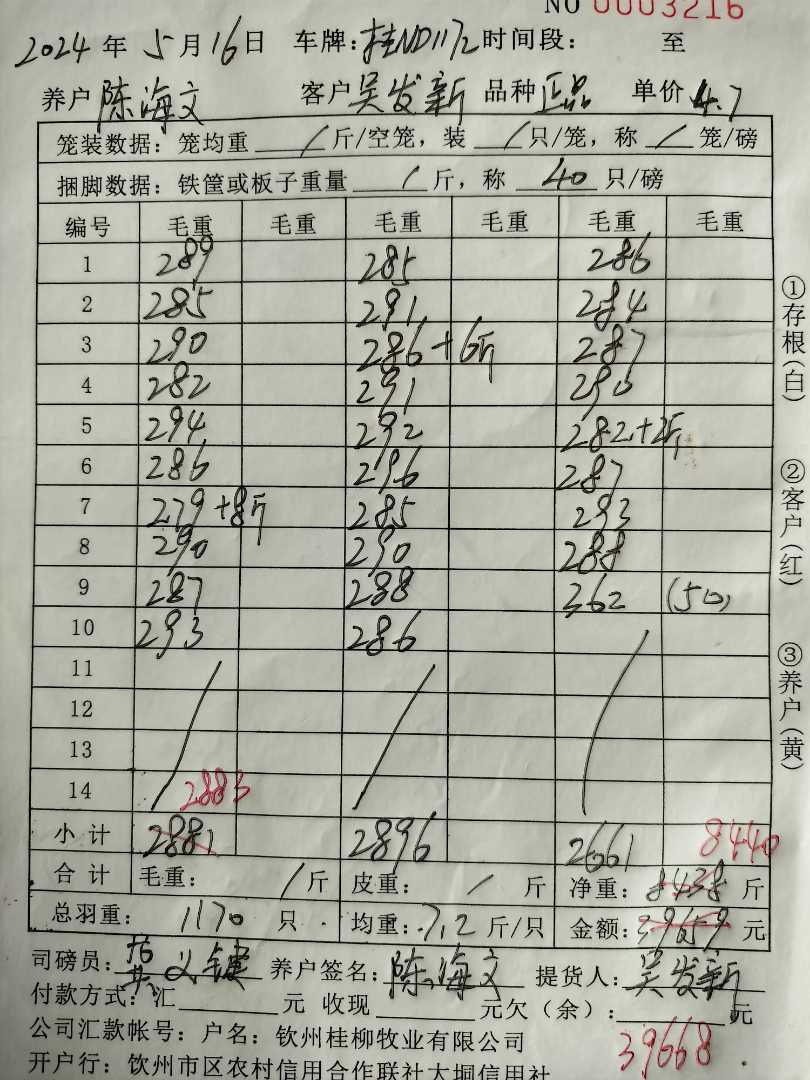 NO 0003216
2024 年 5 月 16 日 车牌: 桂ND1172 时间段: 至
养户 陈海文 客户 吴发新 品种 正品 单价 4.7
笼装数据: 笼均重 / 斤/空笼, 装 / 只/笼, 称 / 笼/磅
捆脚数据: 铁筐或板子重量 / 斤, 称 40 只/磅
编号 毛重 毛重 毛重 毛重 毛重 毛重
1 289 285 286
2 285 291 284
3 290 286+6斤 287
4 282 291 290
5 294 292 282+2斤
6 286 296 287
7 279+8斤 285 293
8 290 290 288
9 287 288 362 (50)
10 293 286
11
12
13
14 2883
小计 2881 2896 2661 8440
合计 毛重: / 斤 皮重: / 斤 净重: 8438 斤
总羽重: 1170 只 均重: 7.2 斤/只 金额: 39659 元
司磅员: 养户签名: 陈海文 提货人: 吴发新
付款方式: 汇 元 收现 元欠(余): 元
公司汇款帐号: 户名: 钦州桂柳牧业有限公司
39668
开户行: 钦州市区农村信用合作联社大垌信用社
①存根(白) ②客户(红) ③养户(黄)